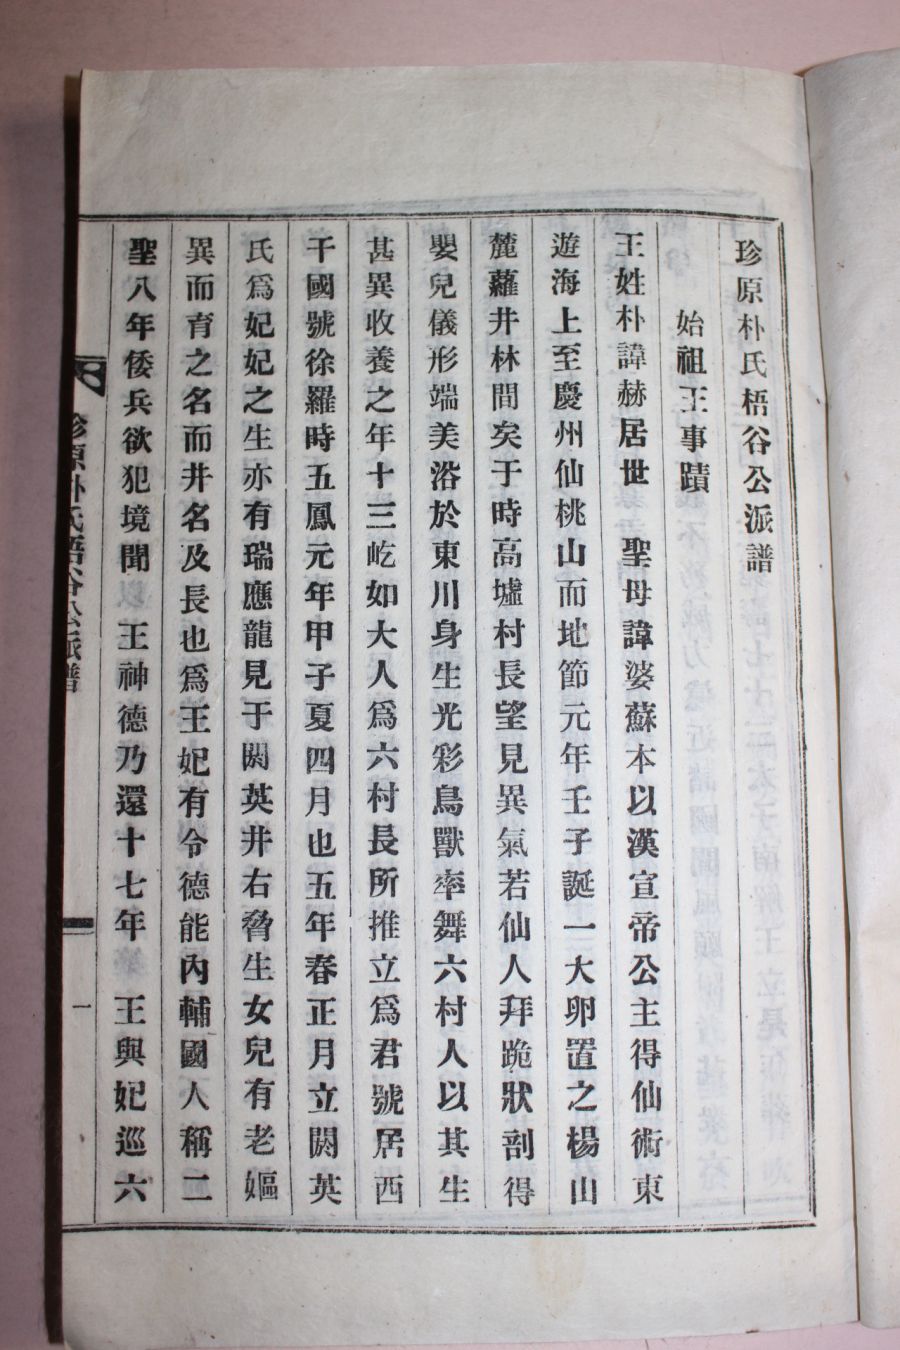 珍原朴氏梧谷公派譜
始祖王事蹟
王姓朴諱赫居世　聖母諱婆蘇本以漢宣帝公主得仙術東
遊海上至慶州仙桃山而地節元年壬子誕一大卵置之楊山
麓蘿井林間矣于時高墟村長望見異氣若仙人拜跪狀剖得
嬰兒儀形端美浴於東川身生光彩鳥獸率舞六村人以其生
甚異收養之年十三屹如大人爲六村長所推立爲君號居西
干國號徐羅時五鳳元年甲子夏四月也五年春正月立閼英
氏爲妃妃之生亦有瑞應龍見于閼英井右脅生女兒有老嫗
異而育之名而井名及長也爲王妃有令德能內輔國人稱二
聖八年倭兵欲犯境聞　王神德乃還十七年　王與妃巡六
珍原朴氏梧谷公派譜
一